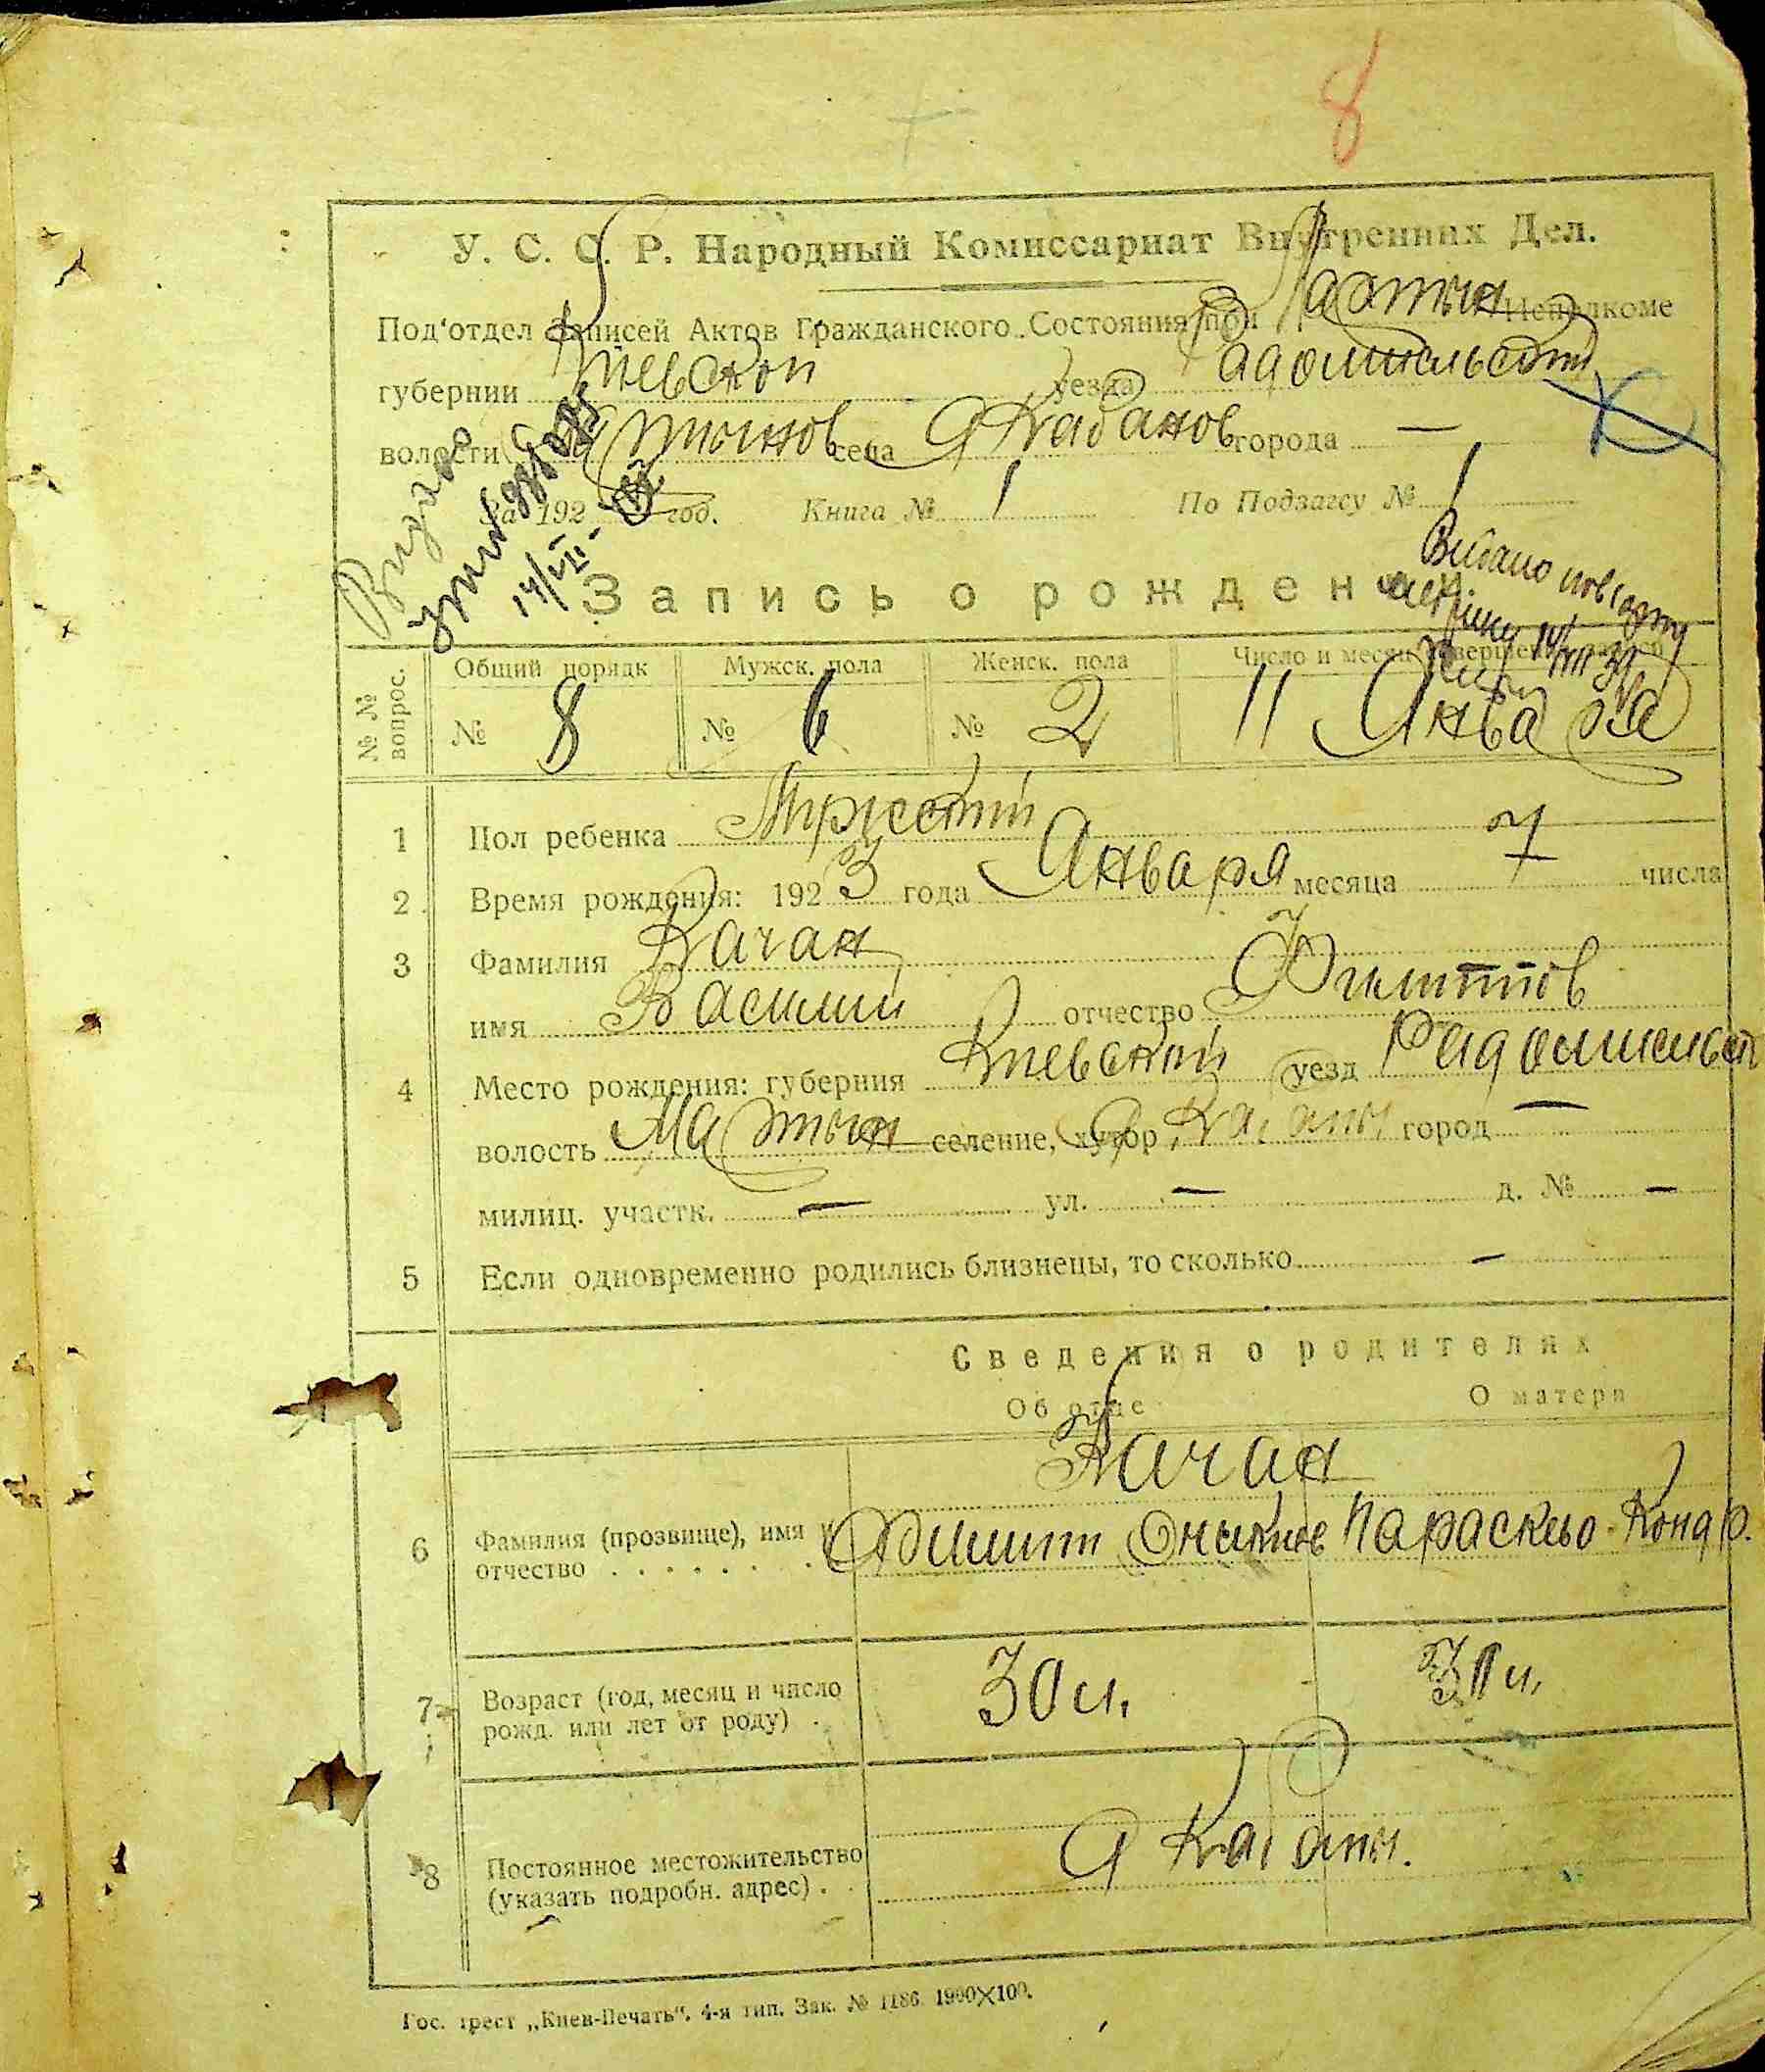 8
У. С. С. Р. Народный Комиссариат Внутренних Дел.
Под'отдел Записей Актов Гражданского Состояния при Мартын Исполкоме
губернии Киевской уезда Радомысльск
волости Мартынов села Кабанов города —
За 192 год. Книга № 1 По Подзагсу № 1
Видано
14/VII
Видано повторну
Запись о рождении
№№ вопрос. Общий порядк Мужск. пола Женск. пола Число и месяц совершения записи
№ 8 № 6 № 2 11 Января
1 Пол ребенка Мужской
2 Время рождения: 1923 года Января месяца 7 числа
3 Фамилия Качан
имя Василий отчество Филиппов
4 Место рождения: губерния Киевской уезд Радомысльск
волость Мартын селение, хутор город —
милиц. участк. — ул. — д. № —
5 Если одновременно родились близнецы, то сколько —
Сведения о родителях
Об отце О матери
Качан
6 Фамилия (прозвище), имя и
отчество Филипп Параскево Кондр.
7 Возраст (год, месяц и число
рожд. или лет от роду) 30 л.
8 Постоянное местожительство
(указать подробн. адрес)
Гос. трест „Киев-Печать". 4-я тип. Зак. № 1186. 1900×100.